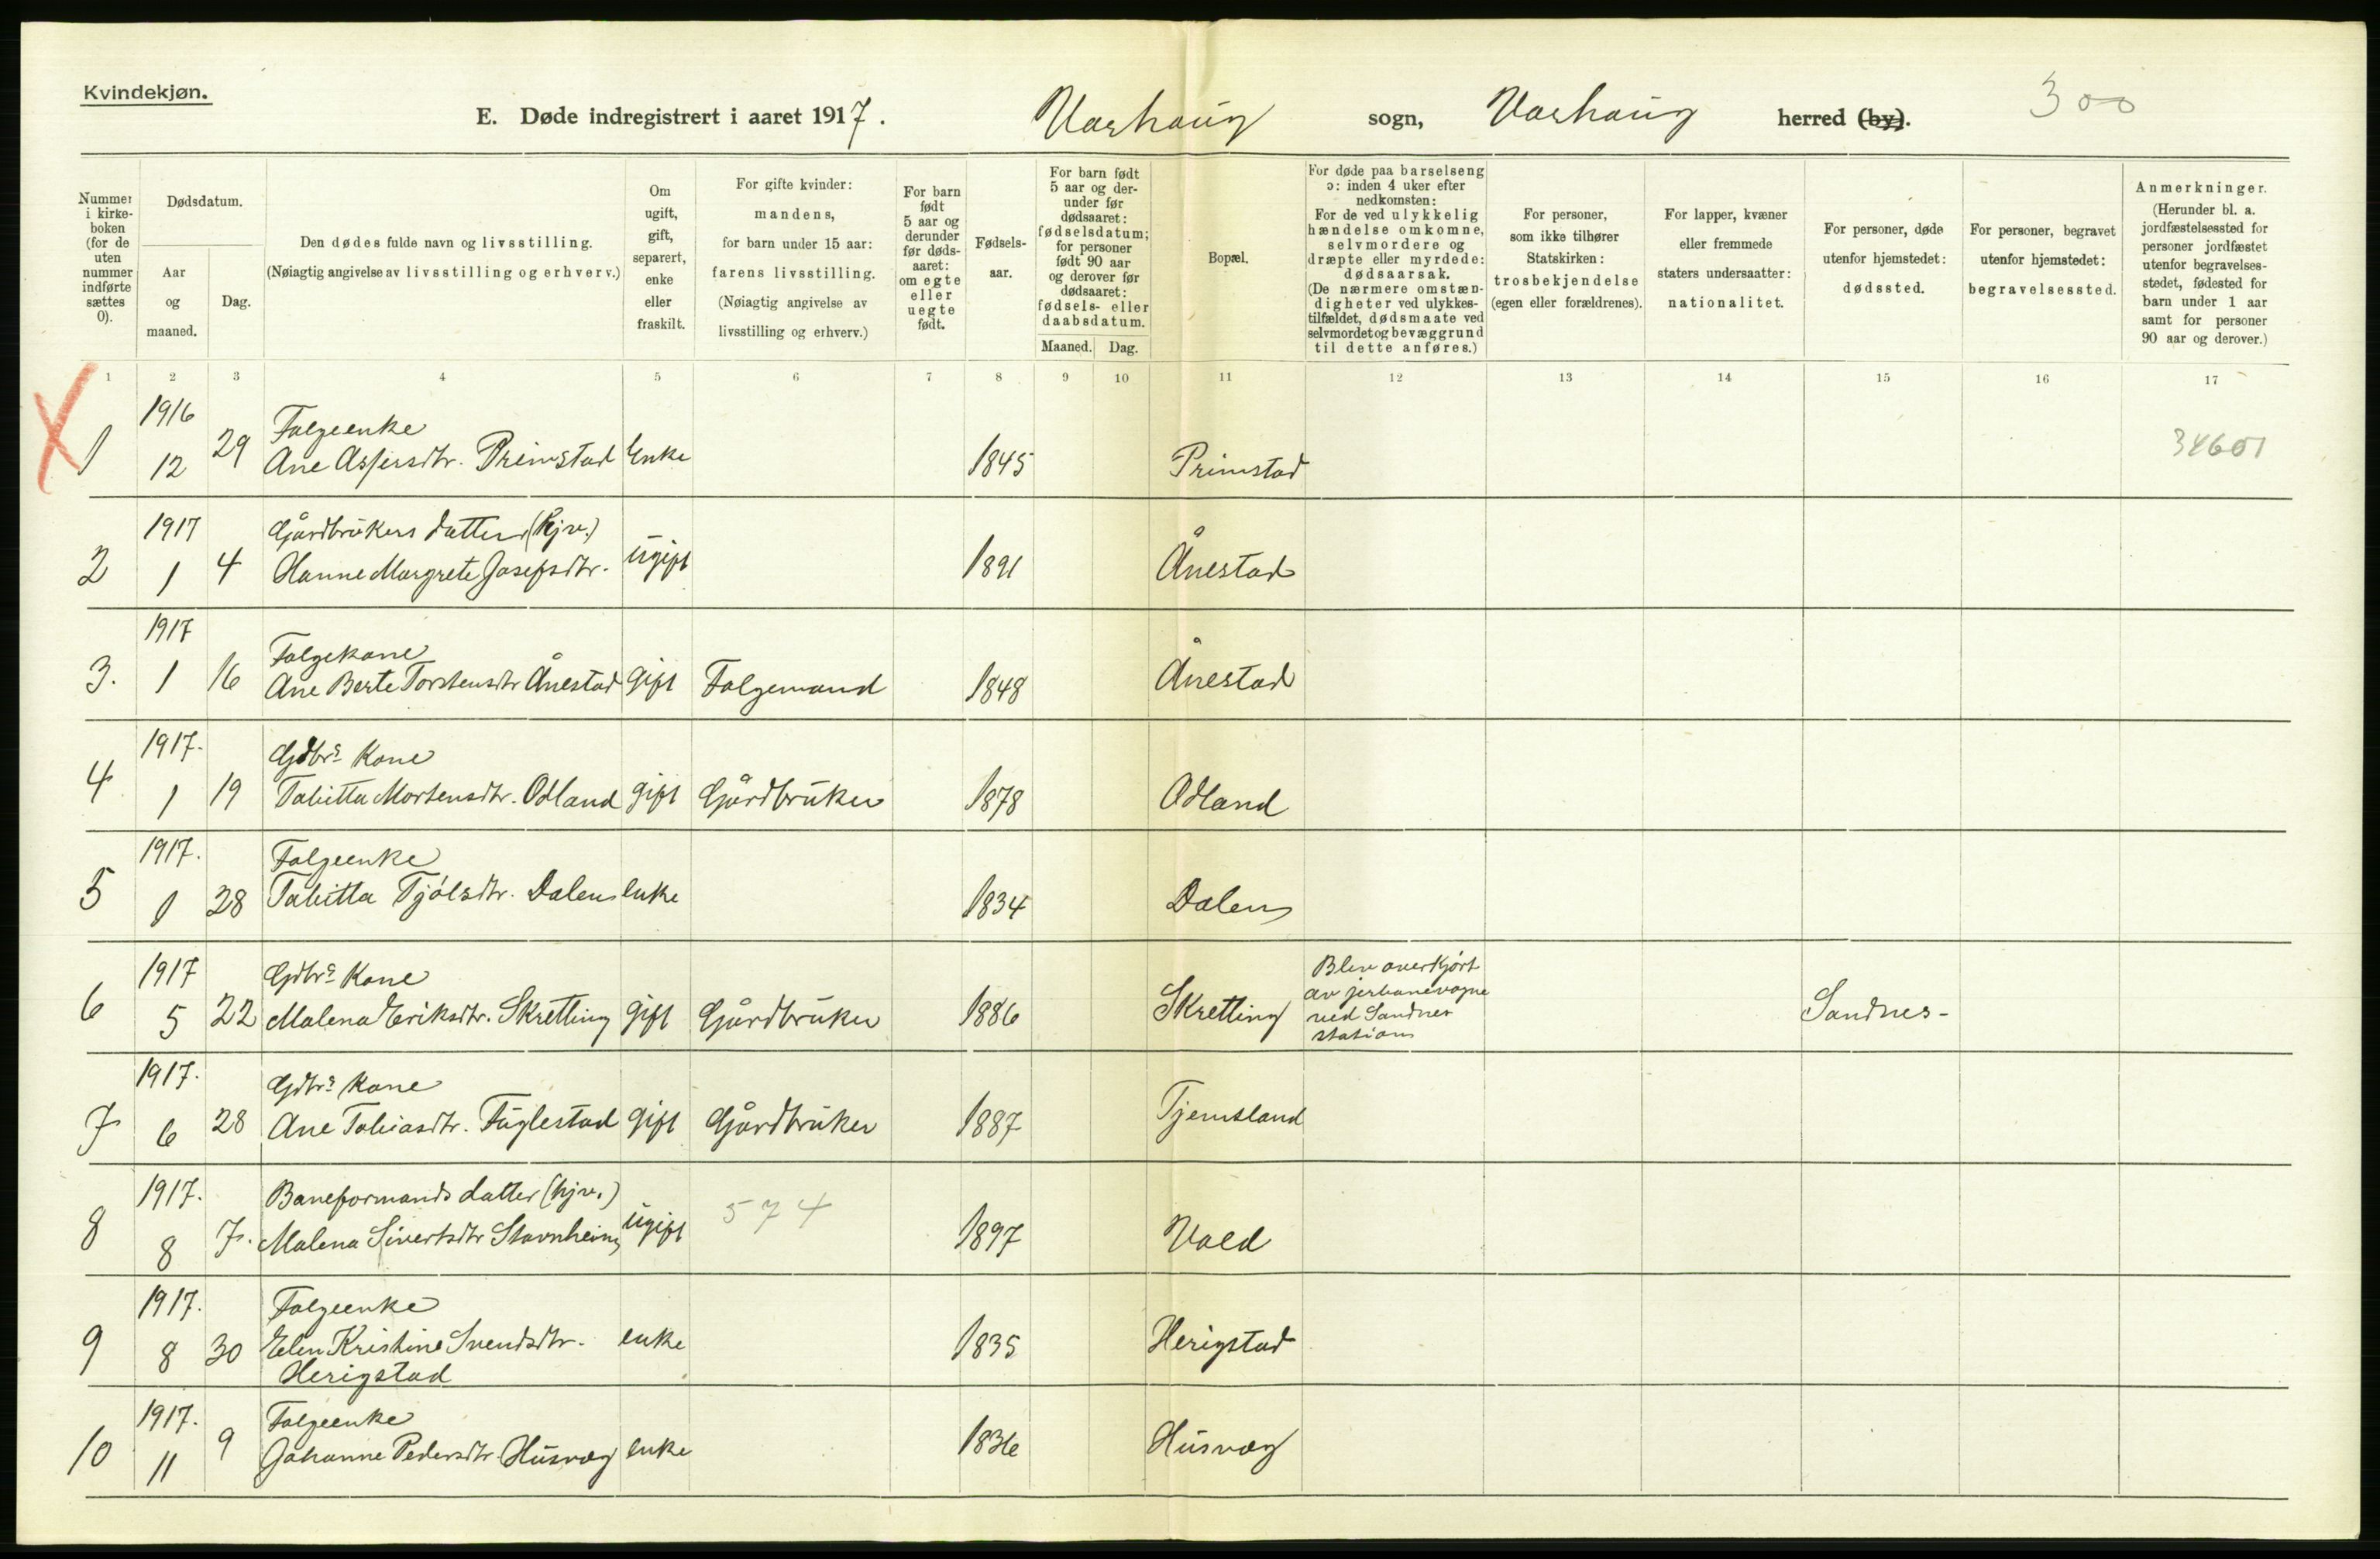 Kvindekjøn.
E. Døde indregistrert i aaret 1917. Varhaug sogn, Varhaug herred (by). 300
Nummer i kirkeboken (for de uten nummer indførte sættes 0).
Dødsdatum.
Aar og maaned.
Dag.
Den dødes fulde navn og livsstilling.
(Nøiagtig angivelse av livsstilling og erhverv.)
Om ugift, gift, separert, enke eller fraskilt.
For gifte kvinder:
mandens,
for barn under 15 aar:
farens livsstilling.
(Nøiagtig angivelse av
livsstilling og erhverv.)
For barn født 5 aar og derunder før dødsaaret: om egte eller uegte født.
Fødselsaar.
For barn født 5 aar og derunder før dødsaaret: fødselsdatum; for personer født 90 aar og derover før dødsaaret: fødsels- eller daabsdatum.
Maaned. Dag.
Bopæl.
For døde paa barselseng ɔ: inden 4 uker efter nedkomsten:
For de ved ulykkelig hændelse omkomne, selvmordere og dræpte eller myrdede: dødsaarsak.
(De nærmere omstændigheter ved ulykkestilfældet, dødsmaate ved selvmordet og bevæggrund til dette anføres.)
For personer, som ikke tilhører Statskirken: trosbekjendelse (egen eller forældrenes).
For lapper, kvæner eller fremmede staters undersaatter: nationalitet.
For personer, døde utenfor hjemstedet: dødssted.
For personer, begravet utenfor hjemstedet: begravelsessted.
Anmerkninger.
(Herunder bl. a. jordfæstelsessted for personer jordfæstet utenfor begravelsesstedet, fødested for barn under 1 aar samt for personer 90 aar og derover.)
1 2 3 4 5 6 7 8 9 10 11 12 13 14 15 16 17
1916 Folgeenke
1 12 29 Ane Assersdtr. Primstad Enke 1845 Primstad 34601
1917 Gårdbrukers datter (hjv.)
2 1 4 Hanne Margrete Josefsdtr. ugift 1891 Ånestad
1917 Folgekone
3. 1 16 Ane Berte Torstensdtr Ånestad gift Folgemand 1848 Ånestad
1917. Gdbrs Kone
4 1 19 Tabitta Mortensdtr. Odland gift Gårdbruker 1878 Odland
1917. Folgeenke
5 1 28 Tabitta Tjólsdtr. Dalen enke 1834 Dalen
1917 Gdbrs Kone
6 5 22 Malena Eriksdtr. Skretting gift Gårdbruker 1886 Skretting
Blev overkjørt
av jerbanevogne
ved Sandnes
station
Sandnes-
1917. Gdbrs Kone
7 6 28 Ane Tobiasdtr. Fuglestad gift Gårdbruker 1887 Tjemsland
1917. Baneformands datter (hjv.)
8 8 7. Malena Sivertsdtr Stavnheim ugift 574 1897 Vold
1917. Folgeenke
9 8 30 Elen Kristine Svendsdtr. enke 1835 Herigstad
Herigstad
1917. Folgeenke
10 11 9 Johanne Pedersdtr. Husvæg enke 1836 Husvæg